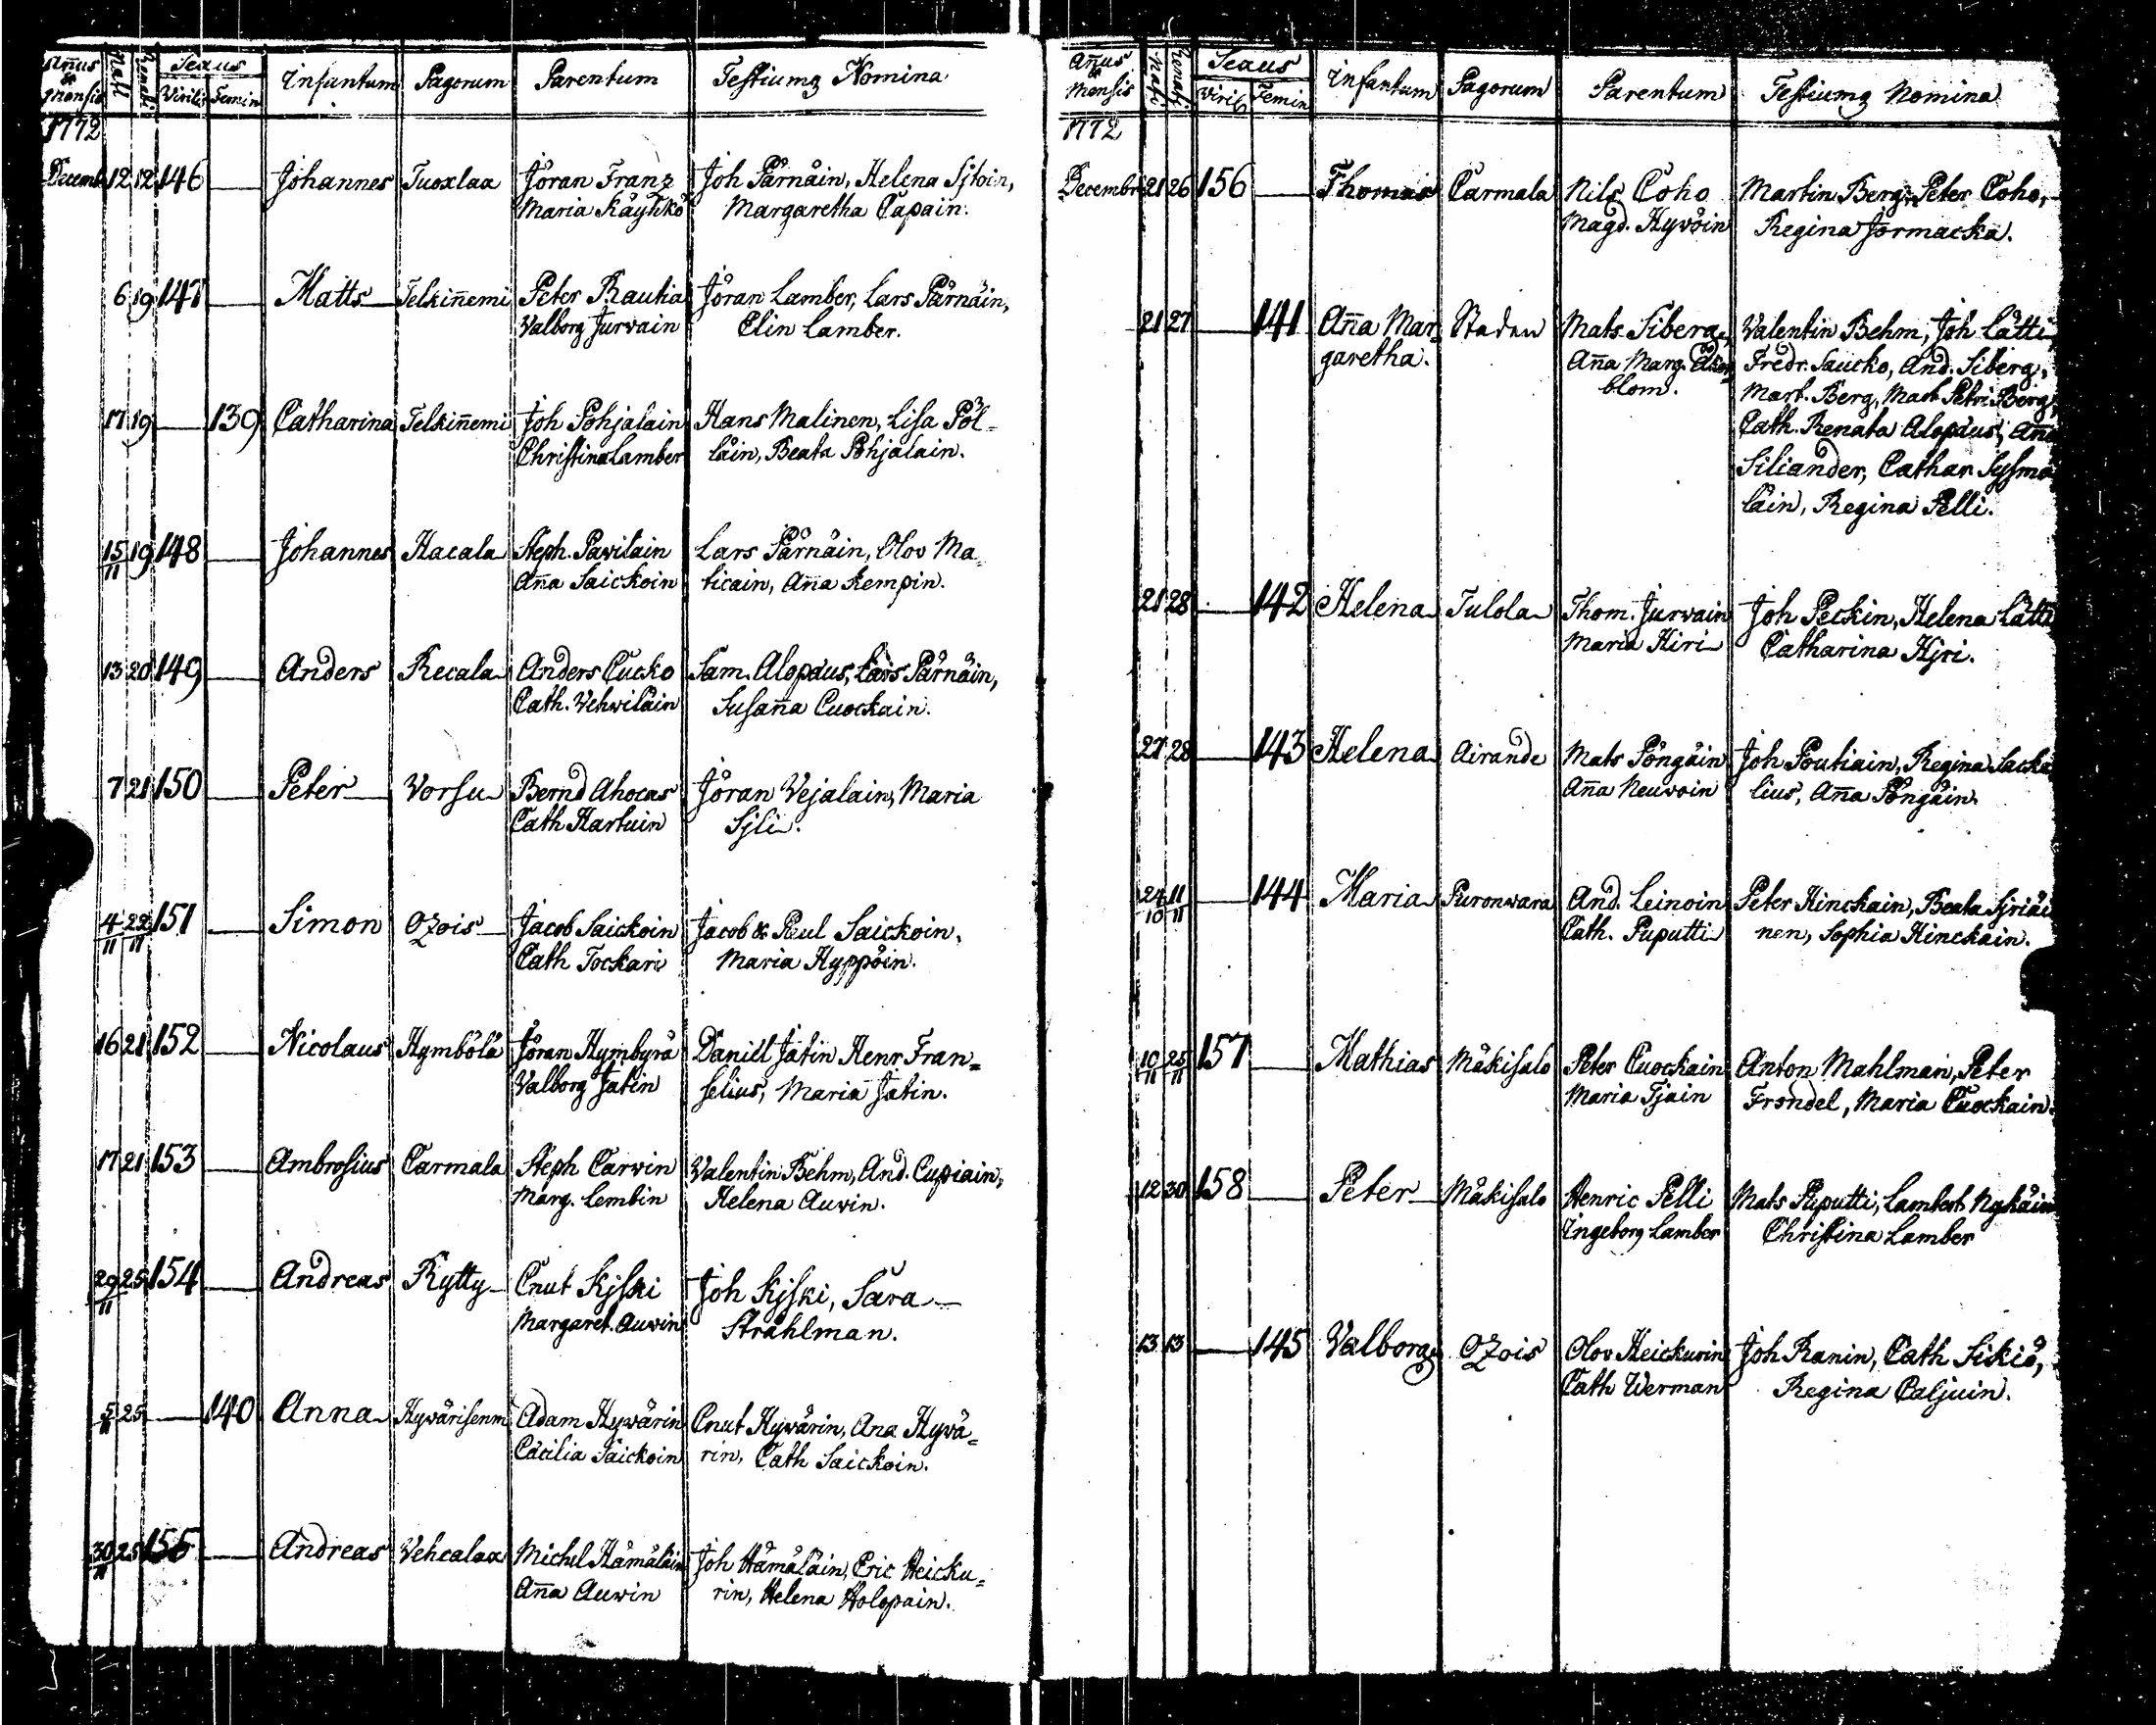 Añus & Mensis Nati Renati Sexus Infantum Pagorum Parentum Testiumq Nomina
Virilis Femin
1772
Decemb 12 12 146 Johannes Tuoxlax Jöran Franz Joh Pärnäin, Helena
Maria Käyhkö Margaretha Capain.
6 19 147 Matts Telkiñemi Peter Rautia Jöran Lamber, Lars Pärnäin,
Valborg Jurvain Elin Lamber.
17 19 139 Catharina Telkiñemi Joh Pohjalain Hans Malinen, Lisa Pöl-
Christina Lamber läin, Beata Pohjalain.
15/11 19 148 Johannes Hacala Steph. Pavilain Lars Pärnäin, Olov Ma-
Aña Saickoin ticain, Aña Kempin.
13 20 149 Anders Recala Anders Cucko Sam. Alopæus, Lars Pärnäin,
Cath. Vehviläin Susaña Cuockain.
7 21 150 Peter Vorsu Bernd Ahocas Jöran Vejalain, Maria
Cath Hartuin Sjli.
4/11 22/11 151 Simon Ozois Jacob Saickoin Jacob & Paul Saickoin,
Cath Tockari Maria Hyppöin.
16 21 152 Nicolaus Hymbölä Jöran Hymbyrä Daniel Jatin Henr. Fran=
Valborg Jatin selius, Maria Jatin.
17 21 153 Ambrosius Carmala Steph Carvin Valentin Behm, And. Cupiain,
Marg. Lembin Helena Auvin.
29/11 25 154 Andreas Rytty Cnut Kjski Joh Kjski, Sara
Margaret. Auvin Strählman.
5/11 25 140 Anna Hyvärisenm Adam Hyvärin Cnut Hyvärin, Ana Hyvä=
Cäcilia Saickoin rin, Cath Saickoin.
30/11 25 155 Andreas Vehcalax Michel Hämäläin Joh Hämäläin, Eric Heicku=
Aña Auvin rin, Helena Holopain.
Añus & Mensis Nati Renati Sexus Infantum Pagorum Parentum Testiumq Nomina
Viril Femin
1772
Decembr 21 26 156 Thomas Carmala Nils Coho Martin Berg, Peter Coho,
Magd. Hyvöin Regina Jormacka.
21 27 141 Aña Mar= Staden Mats Siberg, Valentin Behm, Joh Lätti
garetha. Aña Marg. Fredr. Saucko, And. Siberg,
blom. Mart. Berg, Mart Petri Berg,
Cath. Renata Alopæus, Aña
Siliander, Cathar Sysmä
läin, Regina Pelli.
21 28 142 Helena Tulola Thom. Jurvain Joh Peckin, Helena Lätti
Maria Hiri Catharina Hjri.
27 28 143 Helena Airande Mats Pöngäin Joh Poutiain, Regina Lacka
Aña Neuvoin lius, Aña Pöngäin.
24/10 11/11 144 Maria Puronvara And. Leinoin Peter Hinckain, Beata Sjriäi
Cath. Puputti nen, Sophia Hinckain.
10/11 25/11 157 Mathias Mäkisalo Peter Cuockain Anton Mahlman, Peter
Maria Tjain Frondel, Maria Cuockain.
12 30 158 Peter Mäkisalo Henric Pelli Mats Puputti, Lambert Nykäin
Ingeborg Lamber Christina Lamber
13 13 145 Valborg Ozois Olov Heickurin Joh Ranin, Cath Sikiö,
Cath Werman Regina Caljuin.